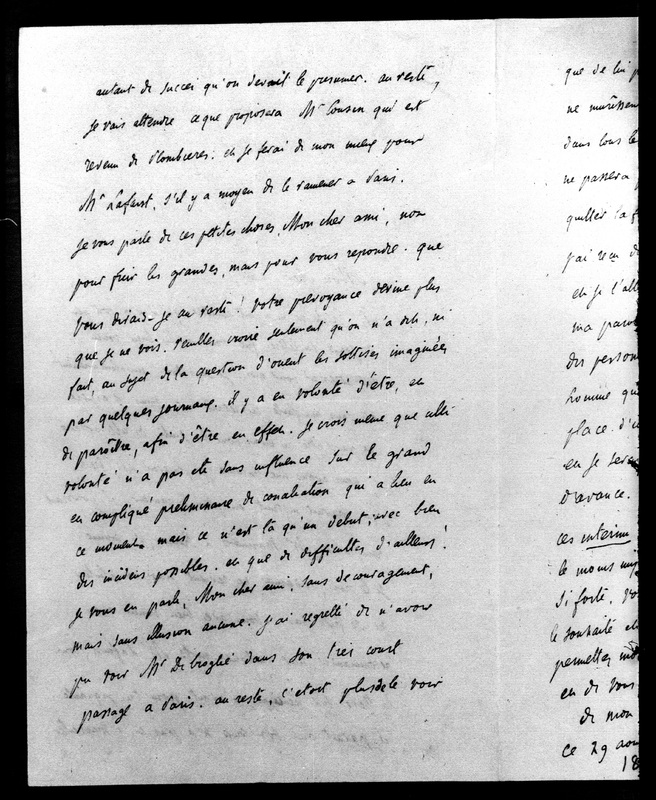 autant de succès qu'on devait le presumer. au reste,
je vais attendre ce que proposera Mr Cousin qui est
revenu de Plombieres. et je ferai de mon mieux pour
Mr Lafaist, s'il y a moyen de le ramener a Paris.
Je vous parle de ces petites choses, Mon cher ami, non
pour fuir les grandes, mais pour vous repondre. que
vous dirais-je au reste! votre prevoyance devine plus
que je ne vois. veuillez croire seulement qu'on n'a dit, ni
fait, au sujet de la question d'orient les sottises imaginées
par quelques journaux. il y a eu volonté d'être, et
de paroître, afin d'être en effet. je crois même que cette
volonté n'a pas été sans influence sur le grand
et compliqué preliminaire de conciliation qui a lieu en
ce moment. mais ce n'est là qu'un debut, avec bien
des incidens possibles. et que de difficultés d'ailleurs!
Je vous en parle, Mon cher ami, sans decouragement,
mais sans illusion aucune. j'ai regretté de n'avoir
pu voir Mr de broglie dans son très court
passage a Paris. au reste, c'etoit plus de le voir
que de lui
ne
dans tous le
ne passera
quitter la
j'ai reçu
et je l'att
ma paro
des person
homme qu
place d'
et je sera
d'avance.
ces interim
le moins
si forte. vo
le souhaite
permettez
et de vous
de mon
ce 29 aou
18